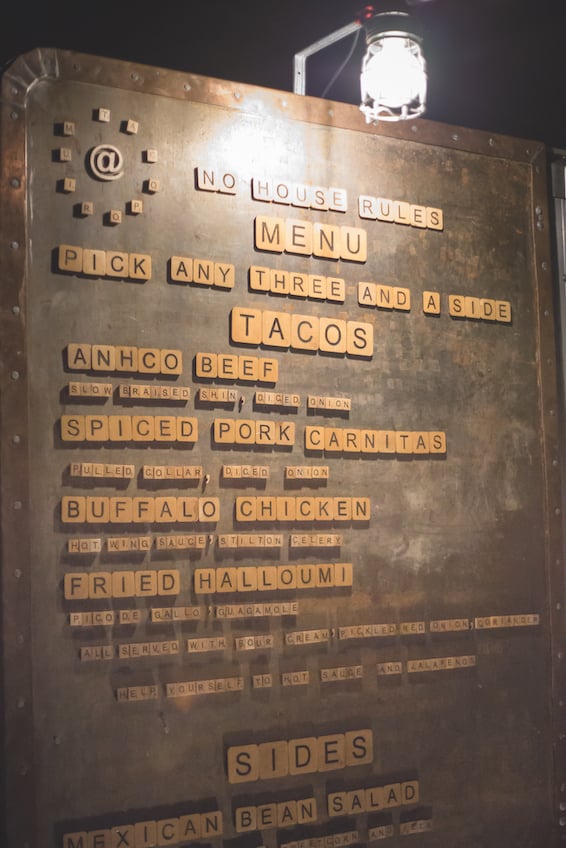 @
NO HOUSE RULES
MENU
PICK ANY THREE AND A SIDE
TACOS
ANHCO BEEF
SLOW BRAISED SHIN, DICED ONION
SPICED PORK CARNITAS
PULLED COLLAR, DICED ONION
BUFFALO CHICKEN
HOT WING SAUCE, STILTON CELERY
FRIED HALLOUMI
PICO DE GALLO, GUAGAMOLE
ALL SERVED WITH SOUR CREAM, PICKLED RED ONION, CORIANDER
HELP YOURSELF TO HOT SAUCE AND JALAPENOS
SIDES
MEXICAN BEAN SALAD
AND